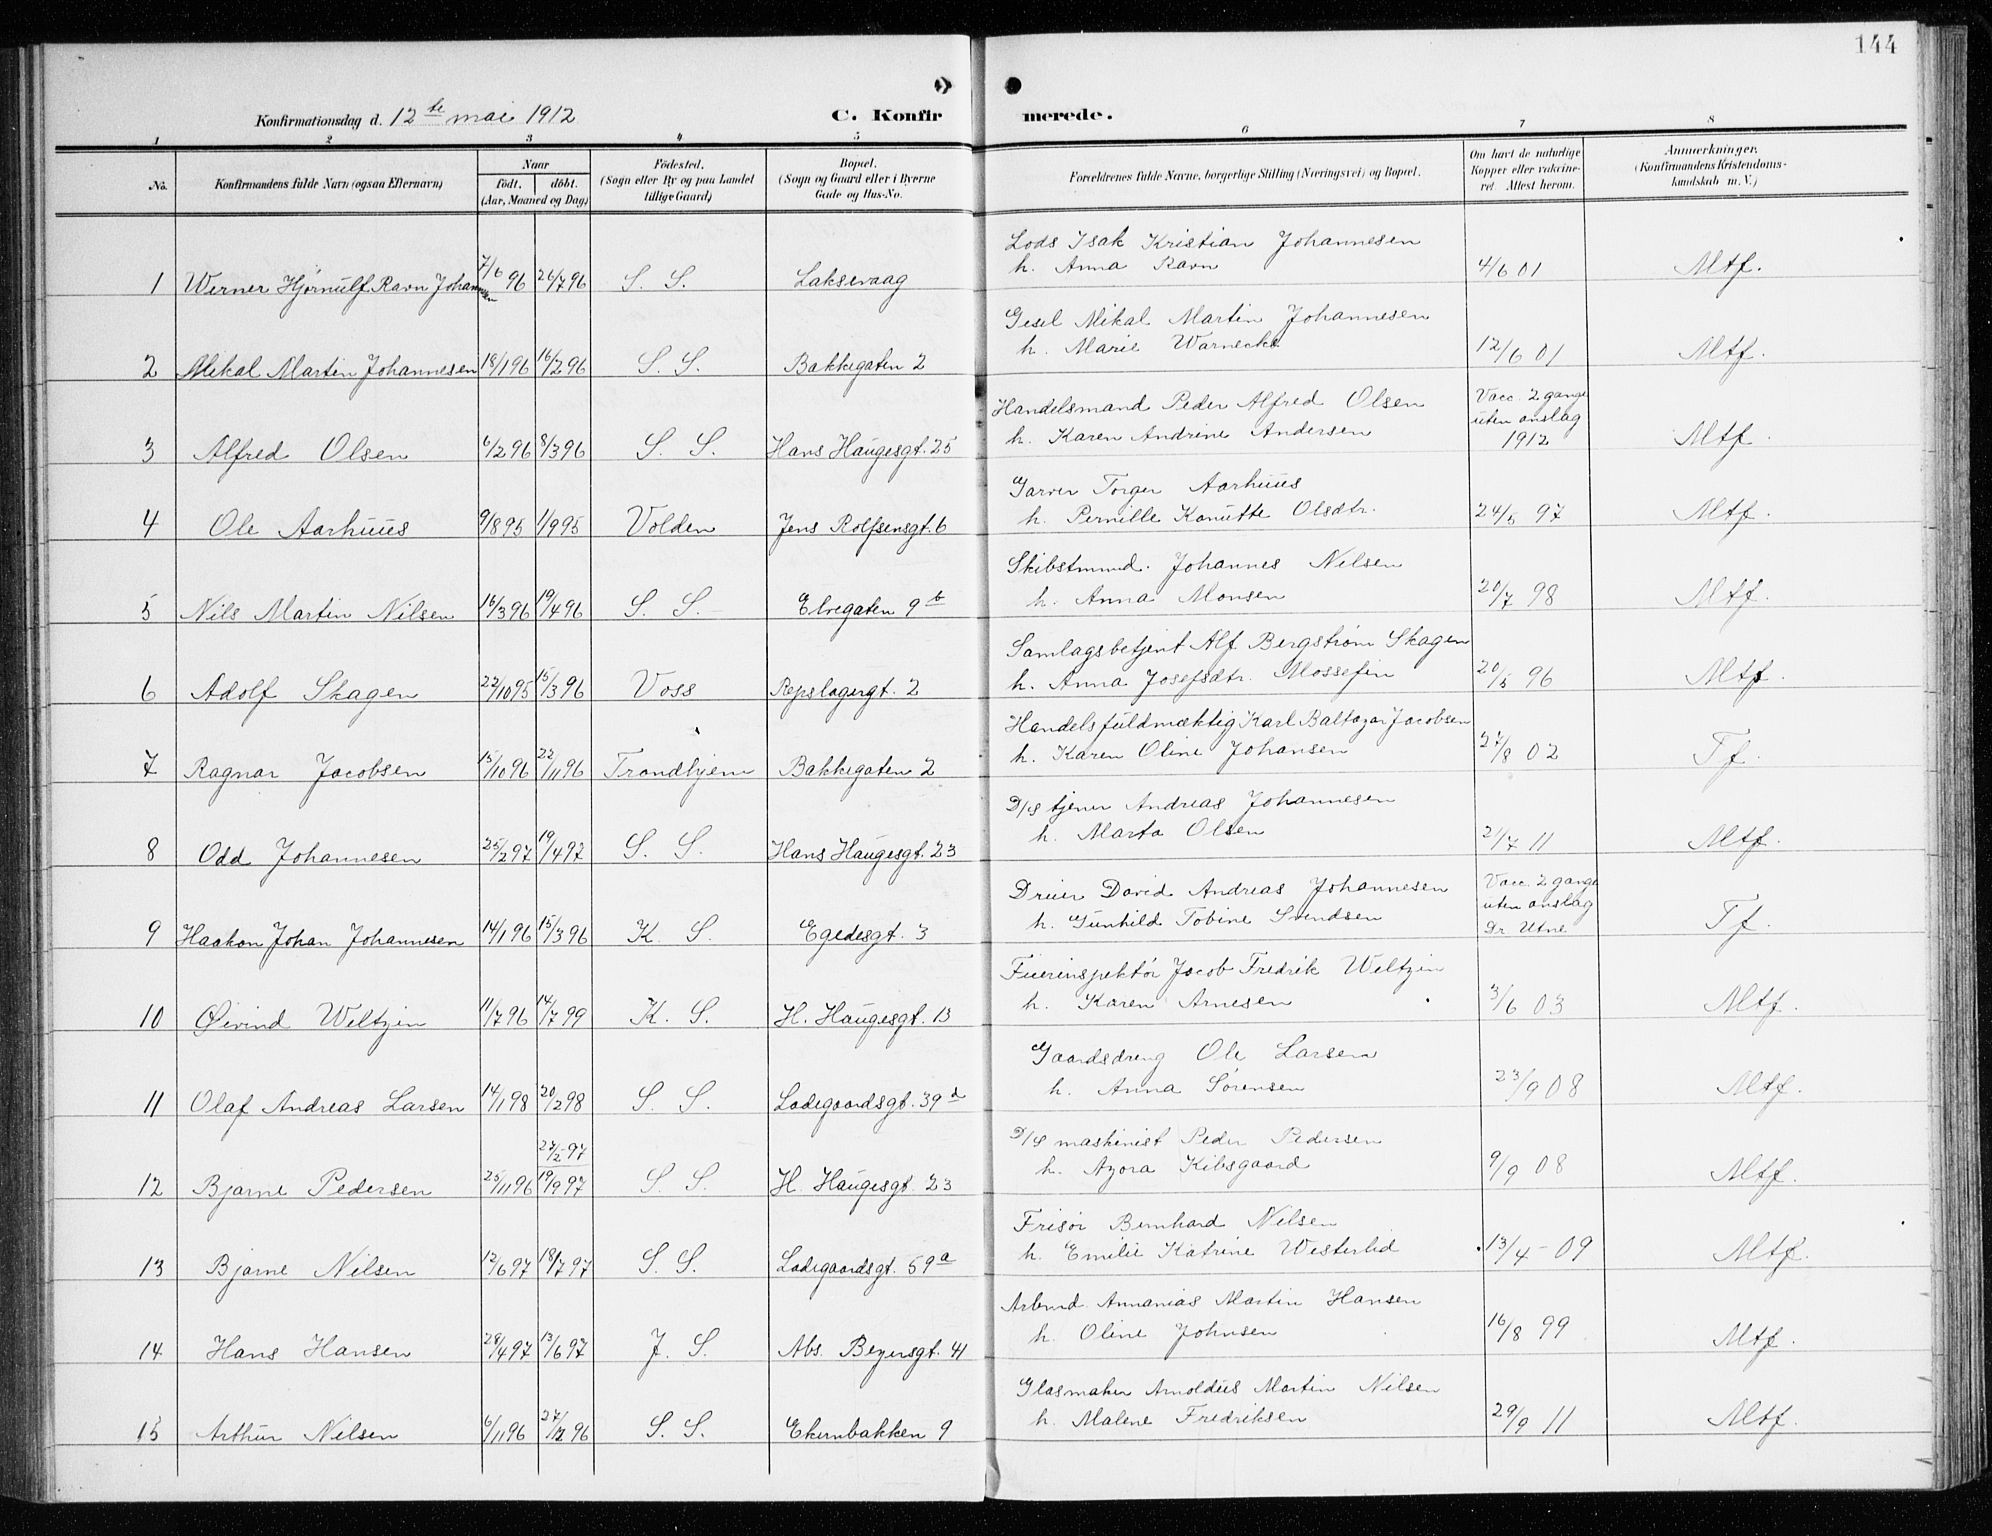 144
Konfirmationsdag d. 12te mai 1912
C. Konfirmerede.
1 2 3 4 5 6 7 8
No.
Konfirmandens fulde Navn (ogsaa Efternavn)
Naar
födt. döbt.
(Aar, Maaned og Dag)
Födested.
(Sogn eller By og paa Landet
tillige Gaard)
Bopæl.
(Sogn og Gaard eller i Byerne
Gade og Hus-No.
Forældrenes fulde Navne, borgerlige Stilling (Næringsvei) og Bopæl.
Om havt de naturlige
Kopper eller vakcine-
ret. Attest herom.
Anmærkninger.
(Konfirmandens Kristendoms-
kundskab m. V.)
Lods Isak Kristian Johannesen
1 Werner Hjørnulf Ravn Johannesen 7/6 96 26/7 96 S. S. Laksevaag h. Anna Ravn 4/6 01 Mtf.
Gesel Mikal Martin Johannesen
2 Mikal Martin Johannesen 18/1 96 16/2 96 S. S. Bakkegaten 2 h. Marie Warnecke 12/6 01 Mtf.
Handelsmand Peder Alfred Olsen Vacc. 2 gange
uten anslag
3 Alfred Olsen 6/2 96 8/3 96 S. S. Hans Haugesgt. 25 h. Karen Andrine Andersen 1912 Mtf.
Garver Torger Aarhuus
4 Ole Aarhuus 9/8 95 1/9 95 Volden Jens Rolfsensgt. 6 h. Pernille Kanutte Olsdtr. 24/5 97 Mtf.
Skibstmmd. Johannes Nilsen
5 Nils Martin Nilsen 16/3 96 19/4 96 S. S. Elvegaten 9b h. Anna Monsen 20/7 98 Mtf.
Samlagsbetjent Alf Bergstrøm Skagen
6 Adolf Skagen 22/10 95 15/3 96 Voss Repslagergt. 2 h. Anna Josefsdtr. Mossefin 20/5 96 Mtf.
Handelsfuldmæktig Karl Baltazar Jacobsen
7 Ragnar Jacobsen 15/10 96 22/11 96 Trondhjem Bakkegaten 2 h. Karen Oline Johansen 27/8 02 Tf.
D/S tjener Andreas Johannesen
8 Odd Johannesen 25/2 97 19/4 97 S. S. Hans Haugesgt. 23 h. Marta Olsen 21/7 11 Mtf.
Dreier David Andreas Johannesen Vacc. 2 gange
uten anslag
9 Haakon Johan Johannesen 14/1 96 15/3 96 K. S. Egedesgt. 3 h. Gunhild Tobine Svendsen Dr. Utne Tf.
Fierinspektør Jacob Fredrik Weltzin
10 Øivind Weltzin 11/7 96 14/7 99 K. S. H. Haugesgt. 13 h. Karen Arnesen 3/6 03 Mtf.
Gaardsdreng Ole Larsen
11 Olaf Andreas Larsen 14/1 98 20/2 98 S. S. Ladegaardsgt. 39d h. Anna Sørensen 23/9 08 Mtf.
27/2 97 D/S maskinist Peder Pedersen
12 Bjarne Pedersen 25/11 96 19/9 97 S. S. H. Haugesgt. 23 h. Azora Kibsgaard 9/9 08 Mtf.
Frisør Bernhard Nilsen
13 Bjarne Nilsen 12/6 97 18/7 97 S. S. Ladegaardsgt. 59a h. Emilie Katrine Westerlid 13/4 - 09 Mtf.
Arbmd. Annanias Martin Hansen
14 Hans Hansen 28/4 97 13/6 97 J. S. Abs. Beyersgt. 41 h. Oline Johnsen 16/8 99 Mtf.
Glasmaker Arnoldus Martin Nilsen
15 Arthur Nilsen 6/11 96 27/12 96 S. S. Ekernbakken 9 h. Malene Fredriksen 29/9 11 Mtf.